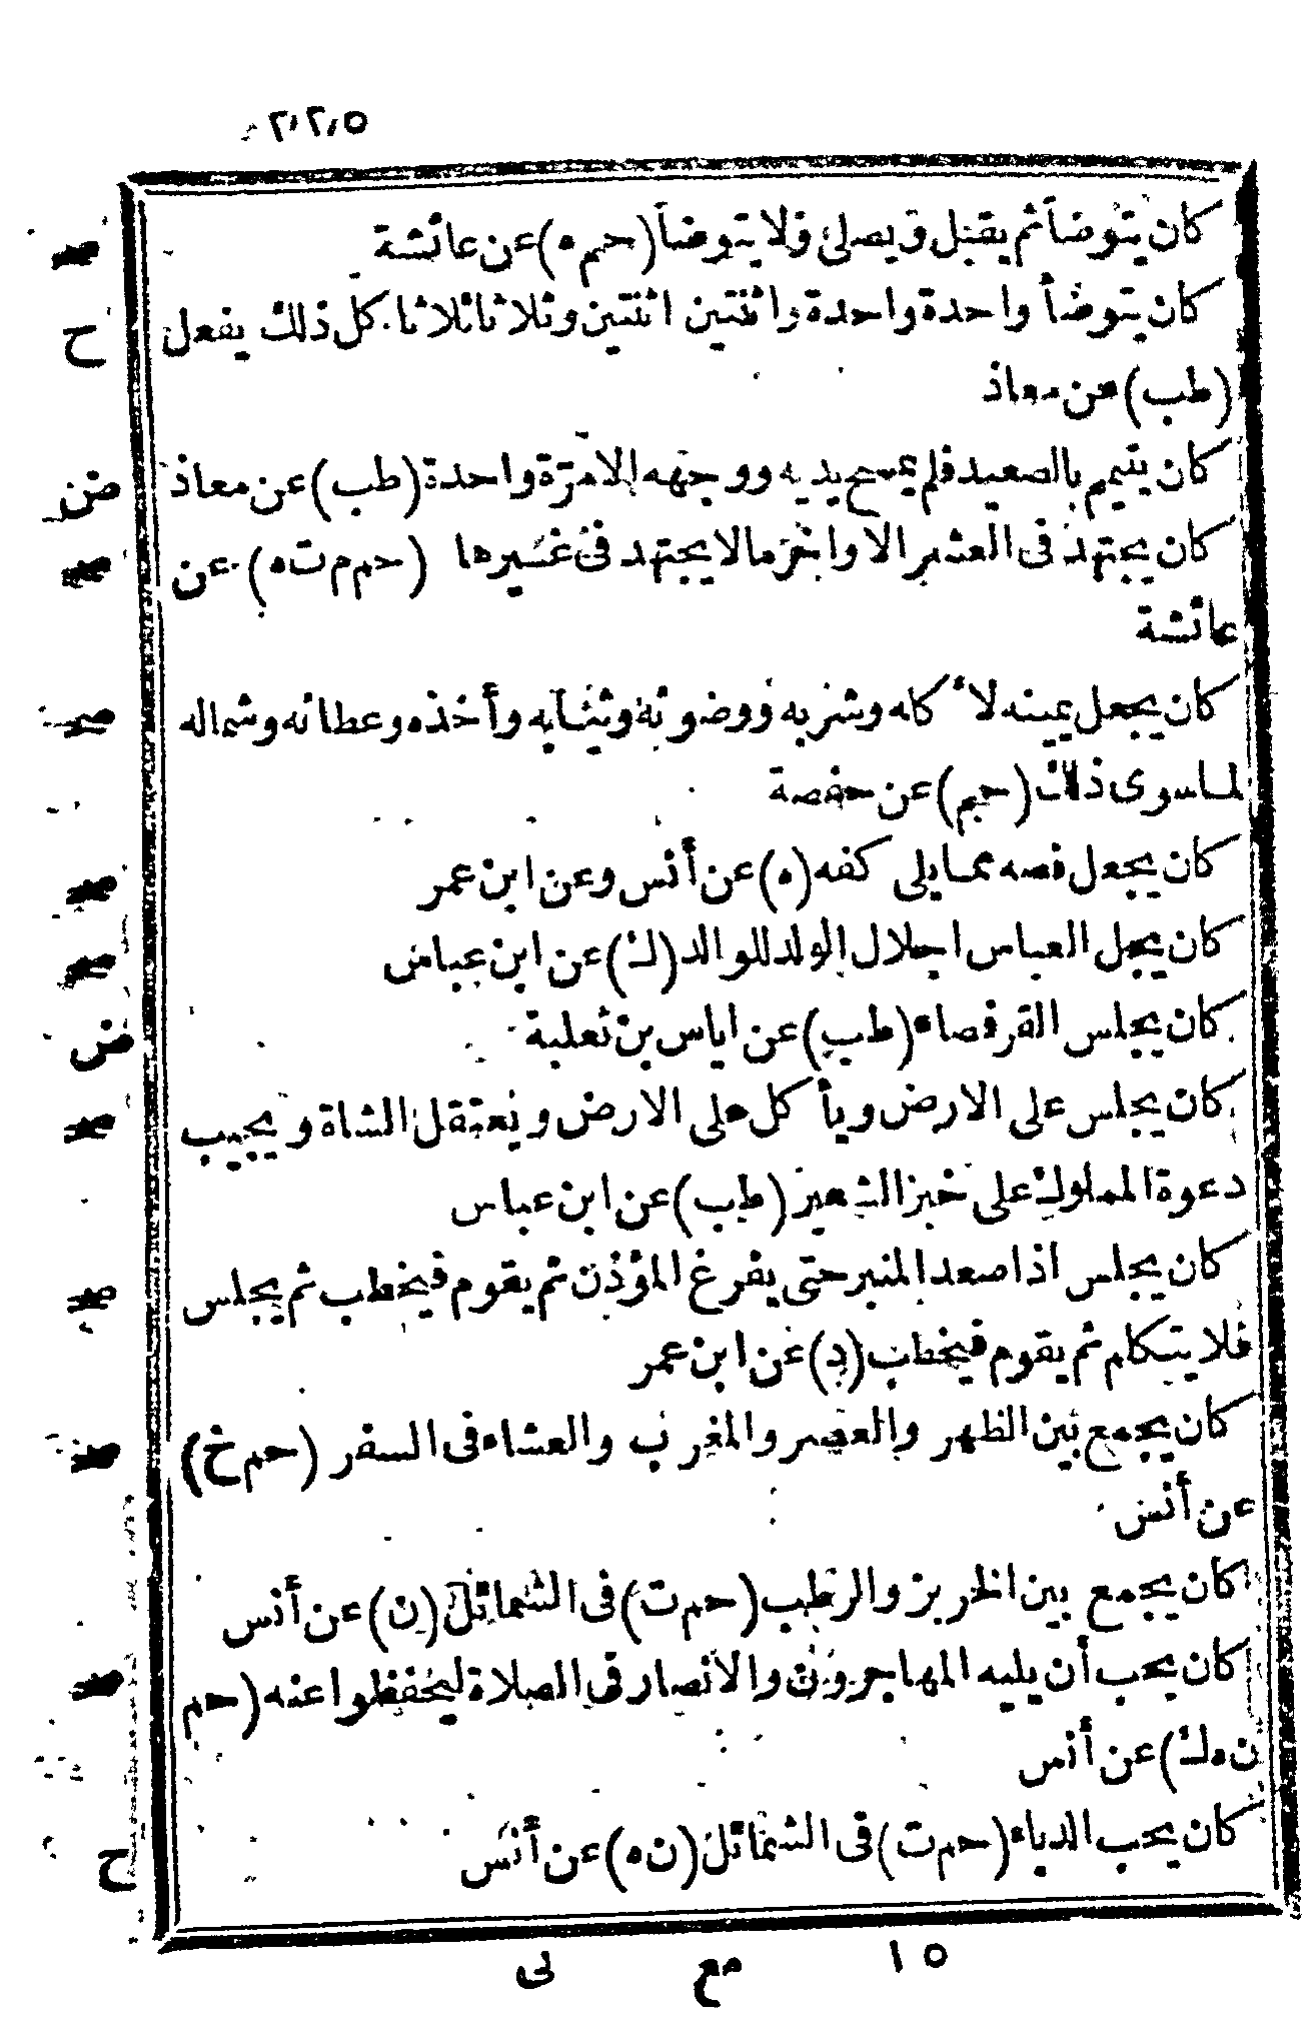 ٢٢٥
كان يتوضأ ثم يقبل ويصلى ولا يتوضأ (حم ه) عن عائشة صح
كان يتوضأ واحدة واحدة واثنتين اثنتين وثلاثا ثلاثا كل ذلك يفعل ح
(طب) عن معاذ
كان يتيمم بالصعيد فلم يمسح يديه ووجهه الا مرّة واحدة (طب) عن معاذ ض
كان يجتهد فى العشر الاواخر ما لا يجتهد فى غيرها (حم م ت ه) عن صح
عائشة
كان يجعل يمينه لأ كله وشربه ووضوئه وثيابه وأخذه وعطائه وشماله صح
لما سوى ذلك (حم) عن حفصة
كان يجعل فصه مما يلى كفه (ه) عن أنس وعن ابن عمر صح
كان يجل العباس اجلال الولد للوالد (ك) عن ابن عباس صح
كان يجلس القرفصاء (طب) عن اياس بن ثعلبة ض
كان يجلس على الارض ويأكل على الارض ويعتقل الشاة ويجيب صح
دعوة المملوك على خبز الشعير (طب) عن ابن عباس
كان يجلس اذا صعد المنبر حتى يفرغ المؤذن ثم يقوم فيخطب ثم يجلس صح
فلا يتكلم ثم يقوم فيخطب (د) عن ابن عمر
كان يجمع بين الظهر والعصر والمغرب والعشاء فى السفر (حم خ) صح
عن أنس
كان يجمع بين الخربز والرطب (حم ت) فى الشمائل (ن) عن أنس
كان يحب أن يليه المهاجرون والانصار فى الصلاة ليحفظوا عنه (حم صح
ن ه ك) عن أنس
كان يحب الدباء (حم ت) فى الشمائل (ن ه) عن أنس ح
١٥ مع نى